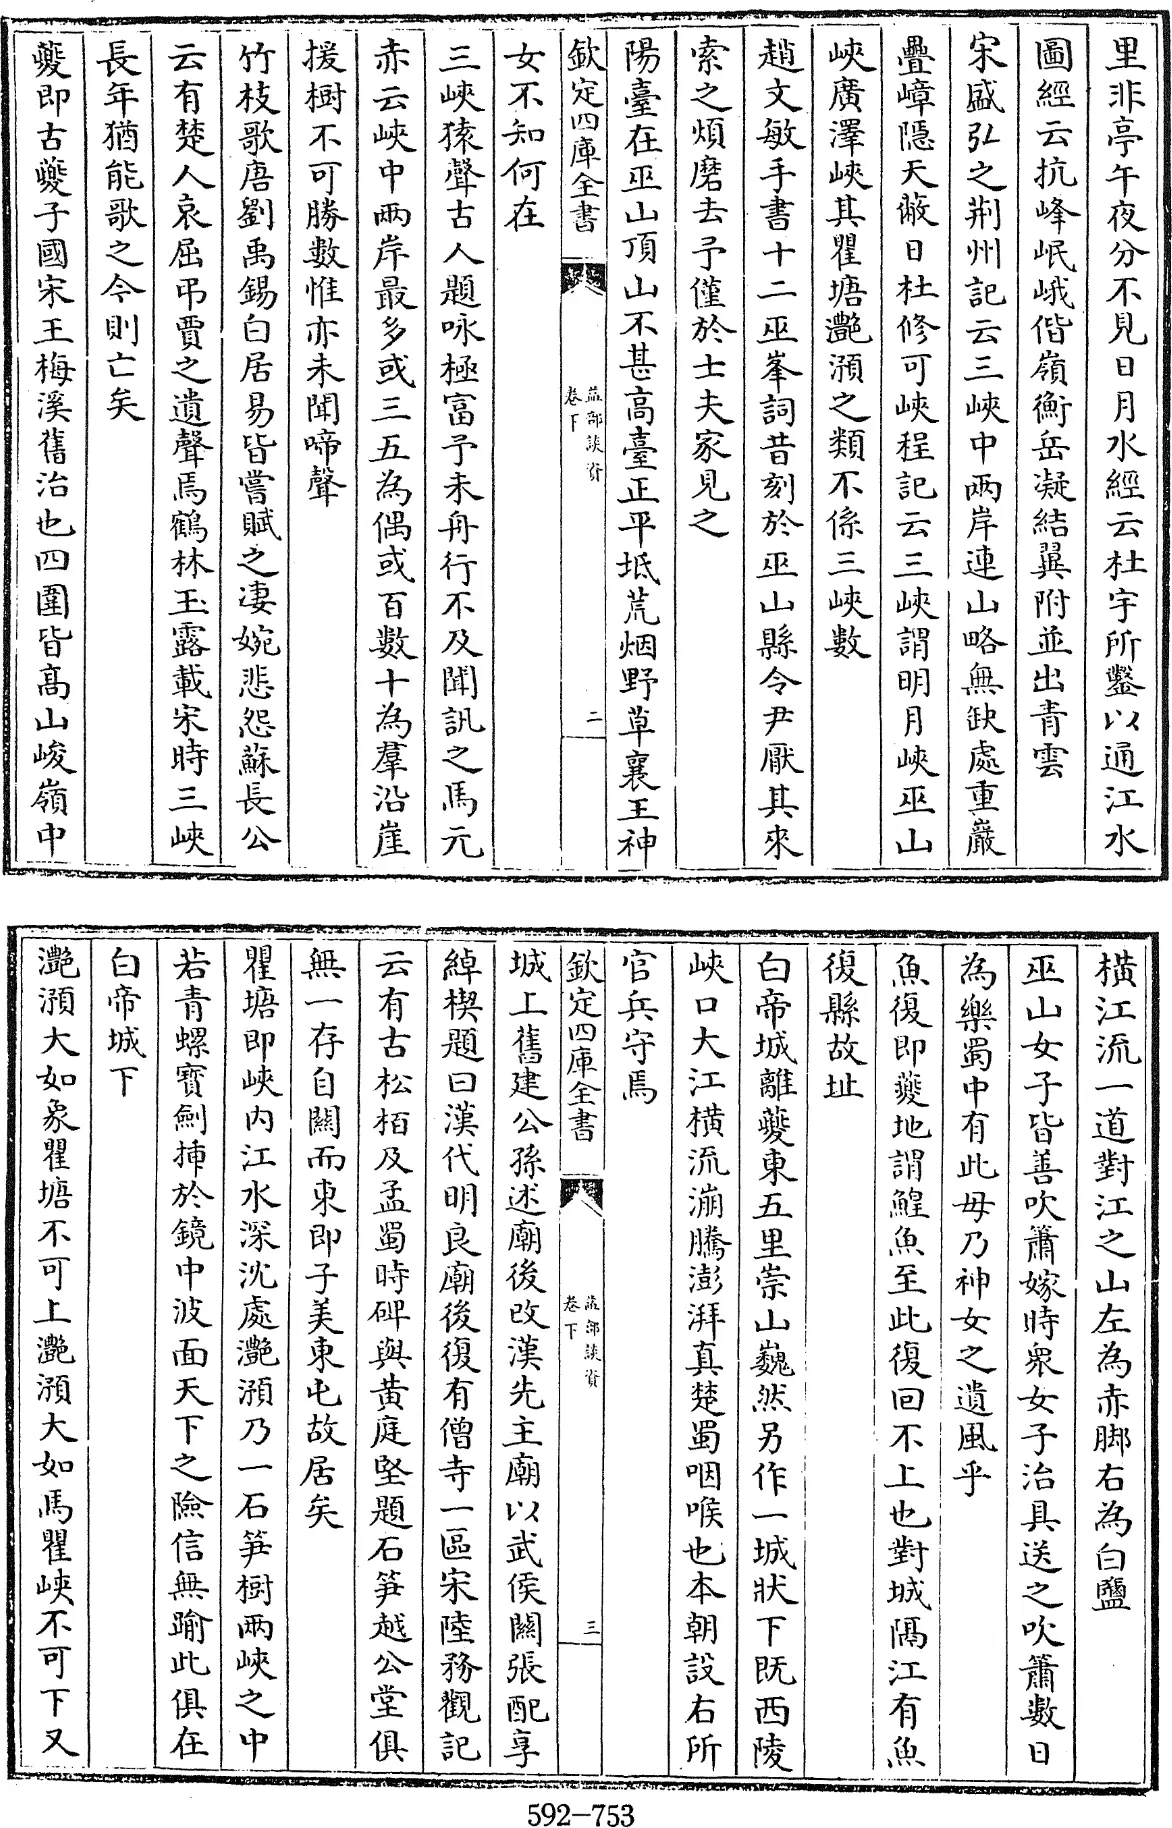 里非亭午夜分不見日月水經云杜宇所鑿以通江水
圖經云抗峰岷峨偕嶺衡岳凝結翼附並出青雲
宋盛弘之荆州記云三峽中兩岸連山略無缺處重巖
疊嶂隠天蔽日杜修可峽程記云三峽謂明月峽巫山
峽廣澤峽其瞿塘灔澦之類不係三峽數
趙文敏手書十二巫峯詞昔刻於巫山縣令尹厭其來
索之煩磨去予僅於士夫家見之
陽臺在巫山頂山不甚高臺正平坻荒烟野草襄王神
欽定四庫全書
蓝部談資
卷下
二
女不知何在
三峽猿聲古人題咏極富予未舟行不及聞訊之馬元
赤云峽中兩岸最多或三五為偶或百數十為羣沿崖
援樹不可勝數惟亦未聞啼聲
竹枝歌唐劉禹錫白居易皆嘗賦之凄婉悲怨蘇長公
云有楚人哀屈弔賈之遺聲焉鶴林玉露載宋時三峽
長年猶能歌之今則亡矣
夔即古夔子國宋王梅溪舊治也四圍皆髙山峻嶺中
橫江流一道對江之山左為赤脚右為白鹽
巫山女子皆善吹簫嫁時衆女子治具送之吹簫數日
為樂蜀中有此毋乃神女之遺風乎
魚復即夔地謂鰉魚至此復回不上也對城隔江有魚
復縣故址
白帝城離夔東五里崇山巍然另作一城狀下既西陵
峽口大江橫流漰騰澎湃真楚蜀咽喉也本朝設右所
官兵守焉
欽定四庫全書
蓝部談資
卷下
三
城上舊建公孫述廟後改漢先主廟以武侯關張配享
綽楔題曰漢代明良廟後復有僧寺一區宋陸務觀記
云有古松栢及孟蜀時碑與黄庭堅題石笋越公堂俱
無一存自關而東即子美東屯故居矣
瞿塘即峽内江水深沈處灔澦乃一石笋樹兩峽之中
若青螺寳劍揷於鏡中波面天下之險信無踰此俱在
白帝城下
灔澦大如象瞿塘不可上灔澦大如馬瞿峽不可下又
592-753